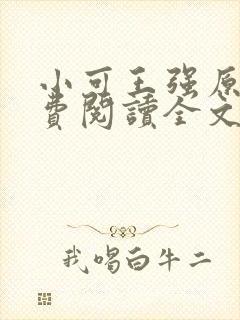 小可王强原
費閱讀全文
我喝白牛二